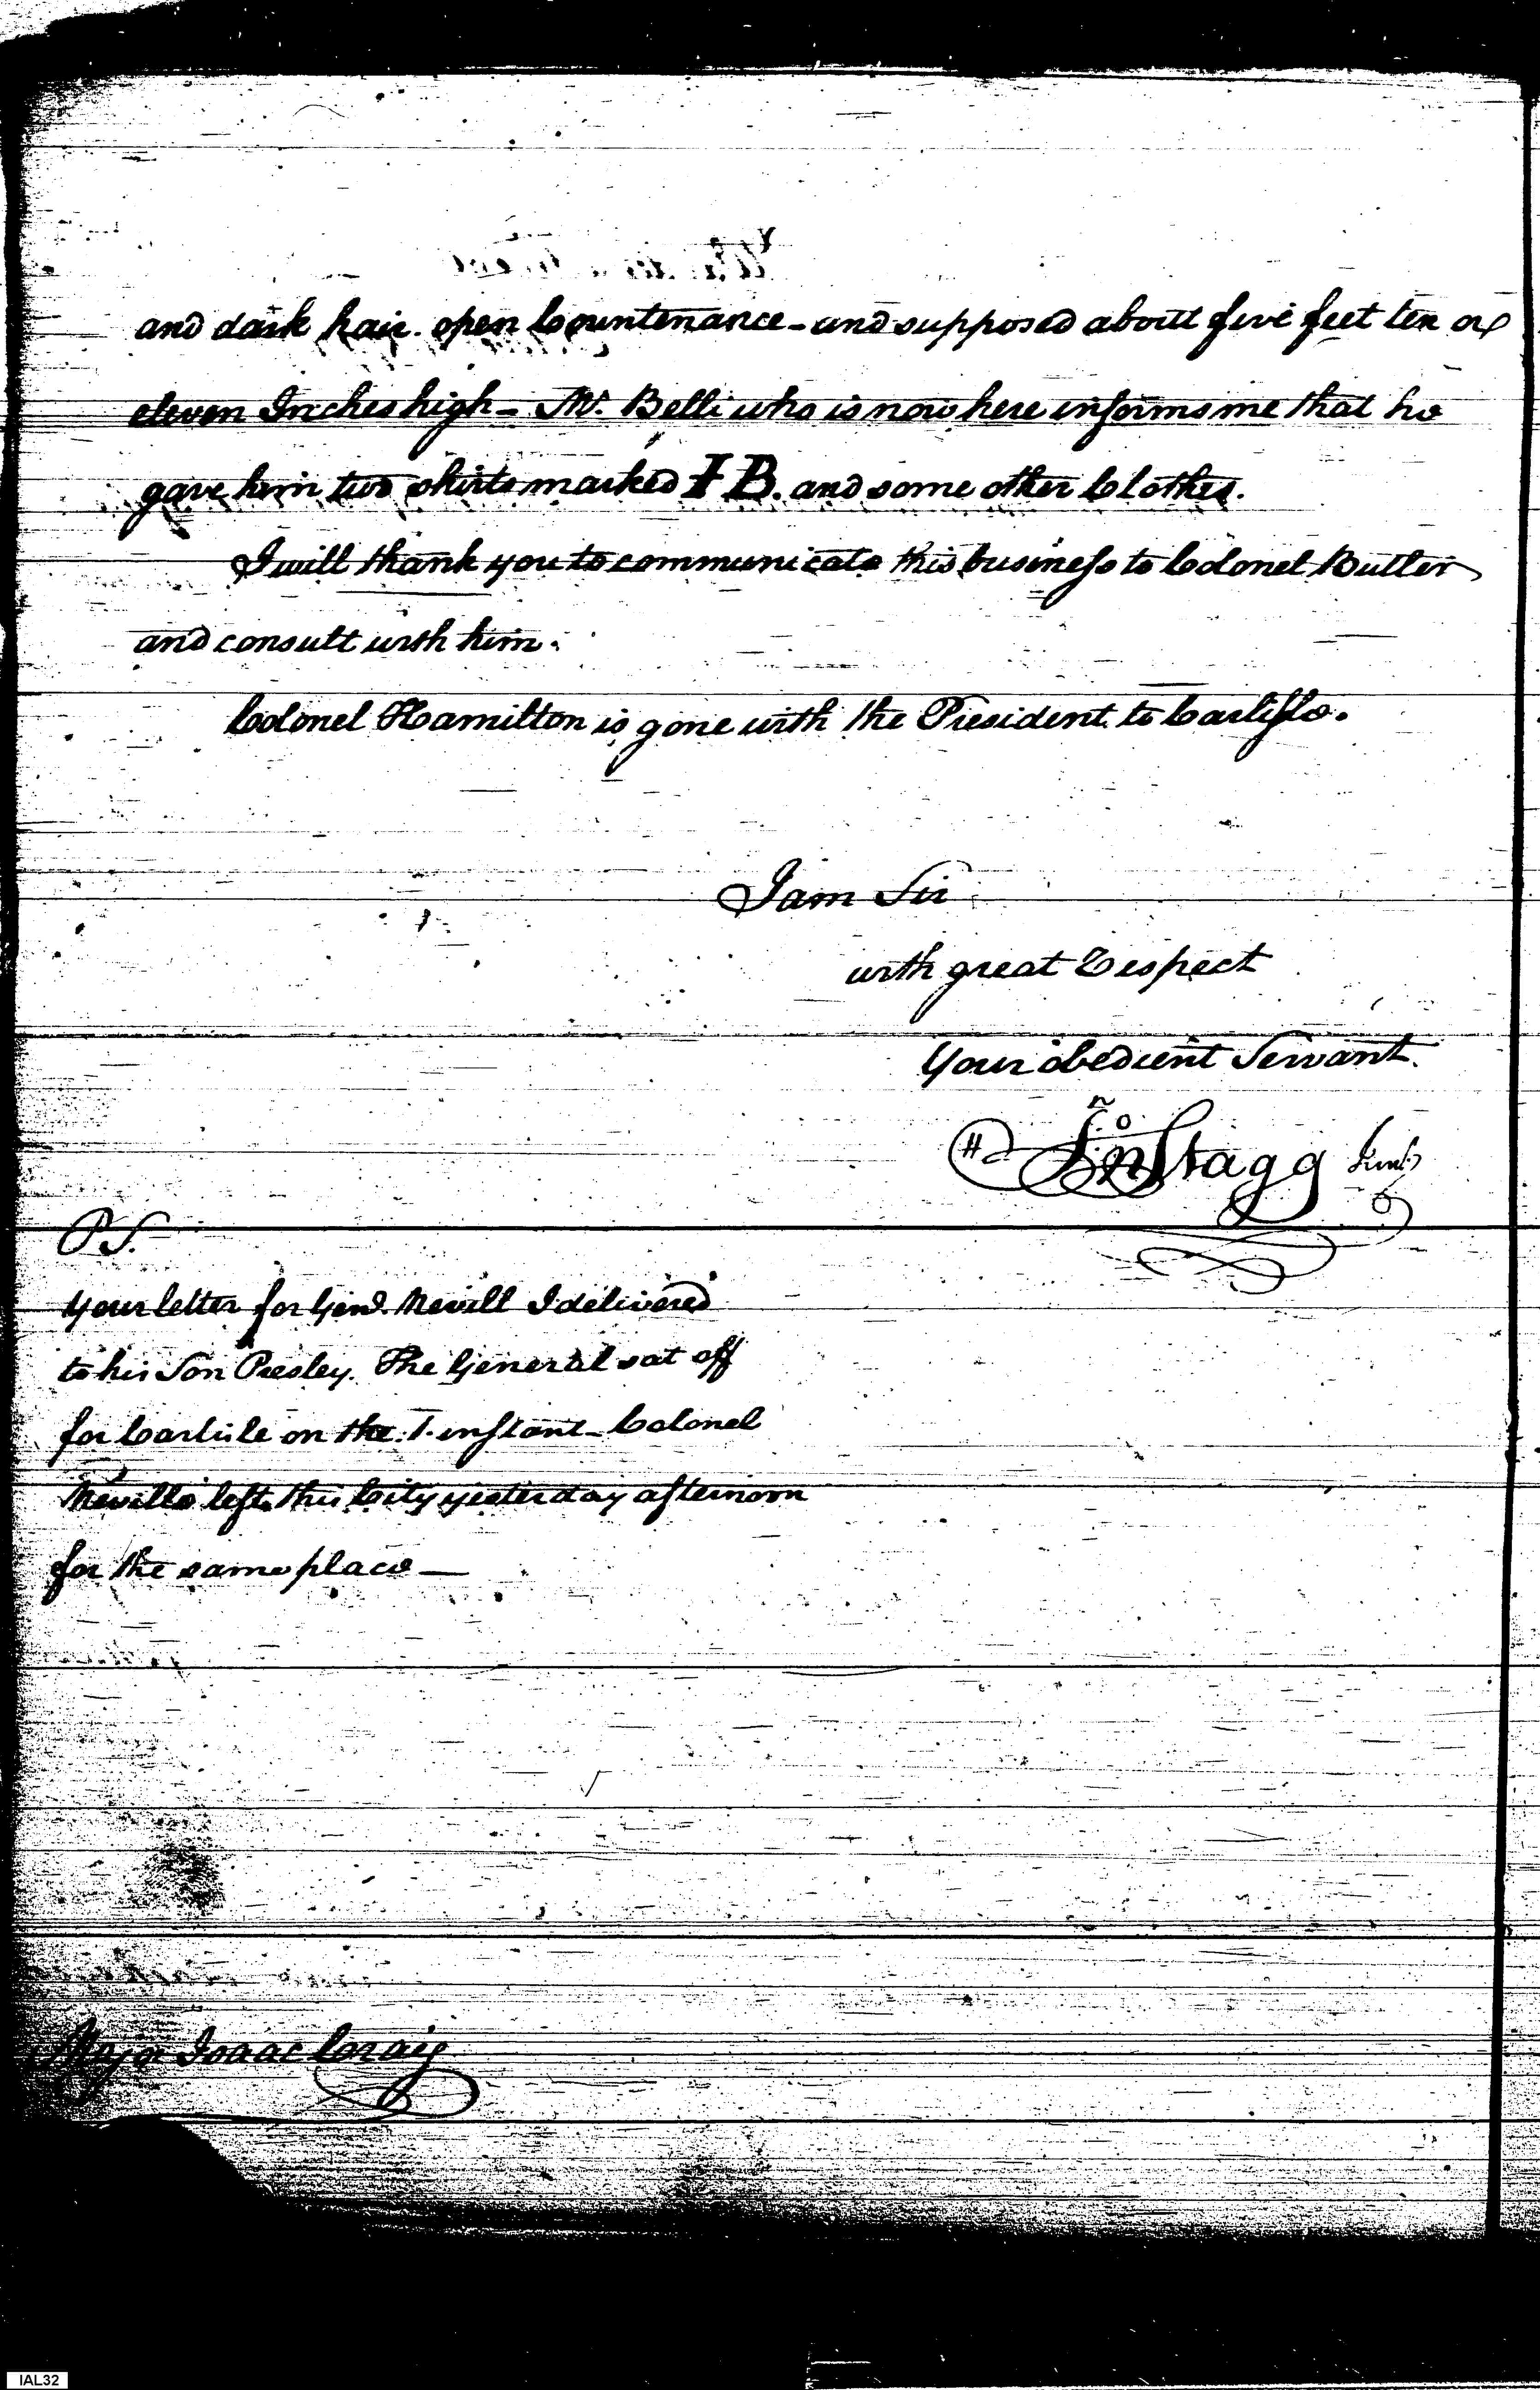 and dark hair. open Countenance - and supposed about five feet ten or
eleven Inches high - Mr. Belli who is now here informs me that he
gave him two shirts marked I B. and some other Clothes.
I will thank you to communicate this business to Colonel Butler
and consult with him.
Colonel Hamilton is gone with the President to Carlisle.
I am Sir
with great Respect
Your obedient Servant.
Jno Stagg Junr
P S.
Your letter for Genl. Nevill I delivered
to his Son Presley. The General sat off
for Carlisle on the 1. instant - Colonel
Neville left this City yesterday afternoon
for the same place —
Major Isaac Craig
IAL32